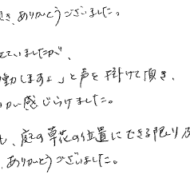 き、ありがとうございました。
えていましたが、
動しますよ」と声を掛けて頂き、
かい感じられました。
も、庭の草花の位置にできる限り
ありがとうございました。